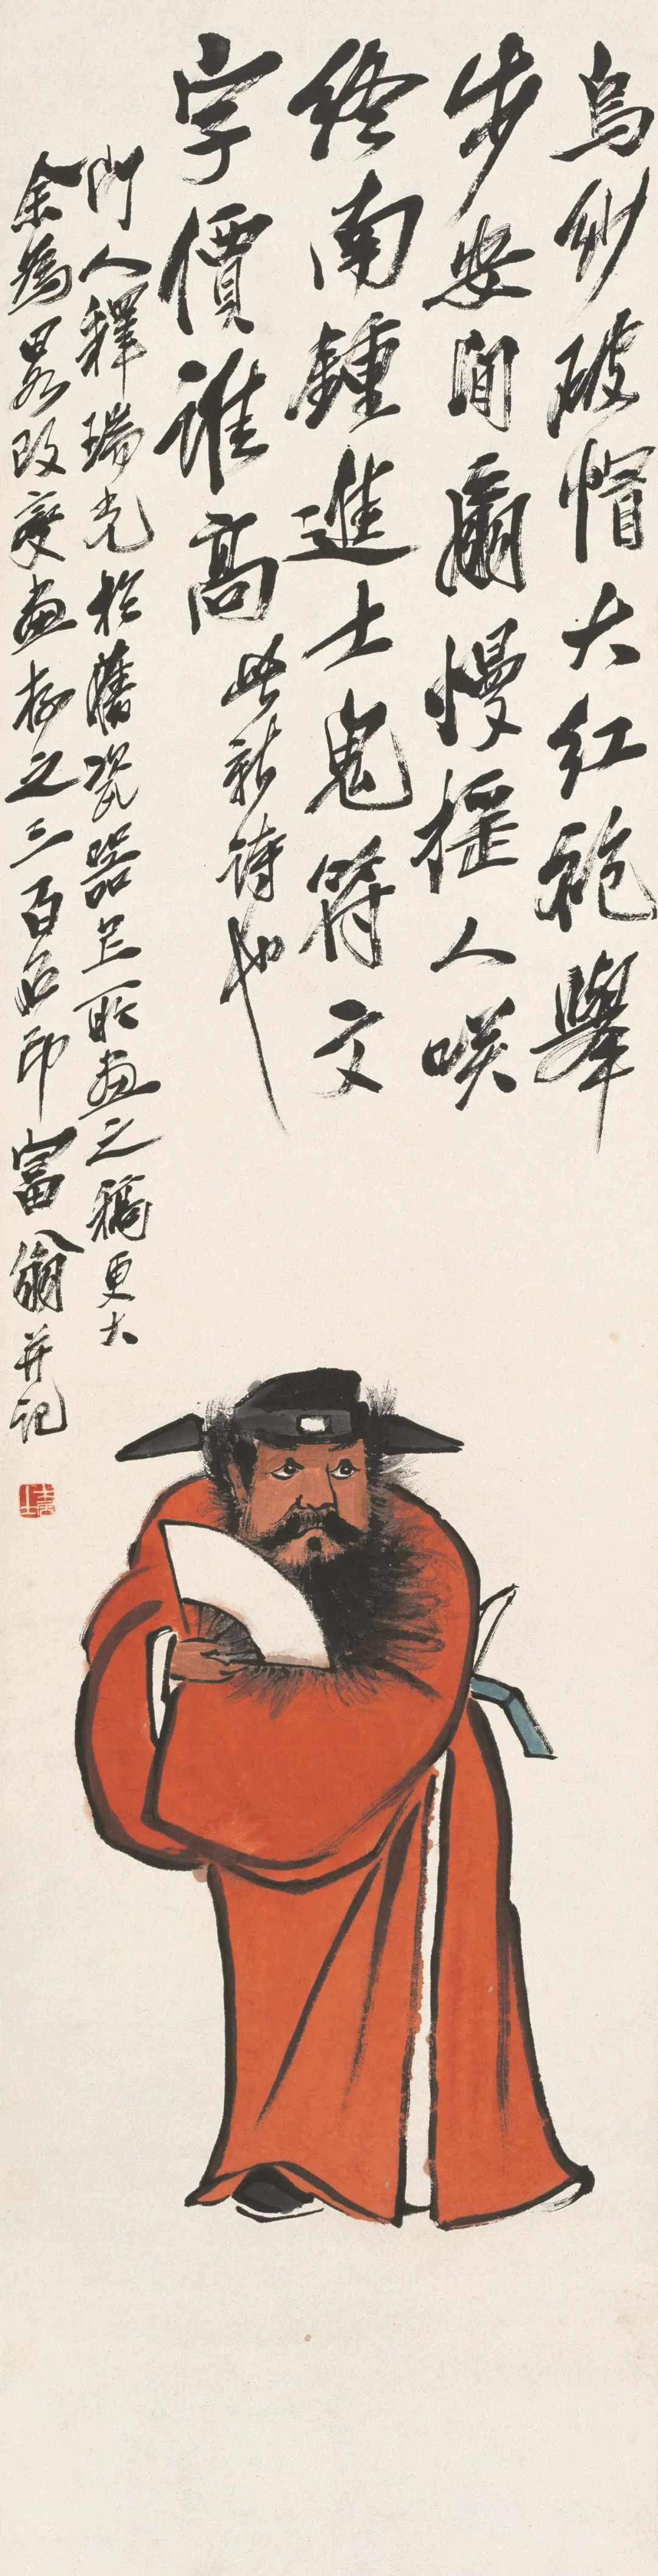 烏紗破帽大紅袍舉
步安閒扇慢搖人咲
終南鍾進士鬼符文
字價誰高 此新詩也
門人釋瑞光於舊瓷器上所畫之稿更大
余為畧改變畫存之三百石印富翁并記
木居士